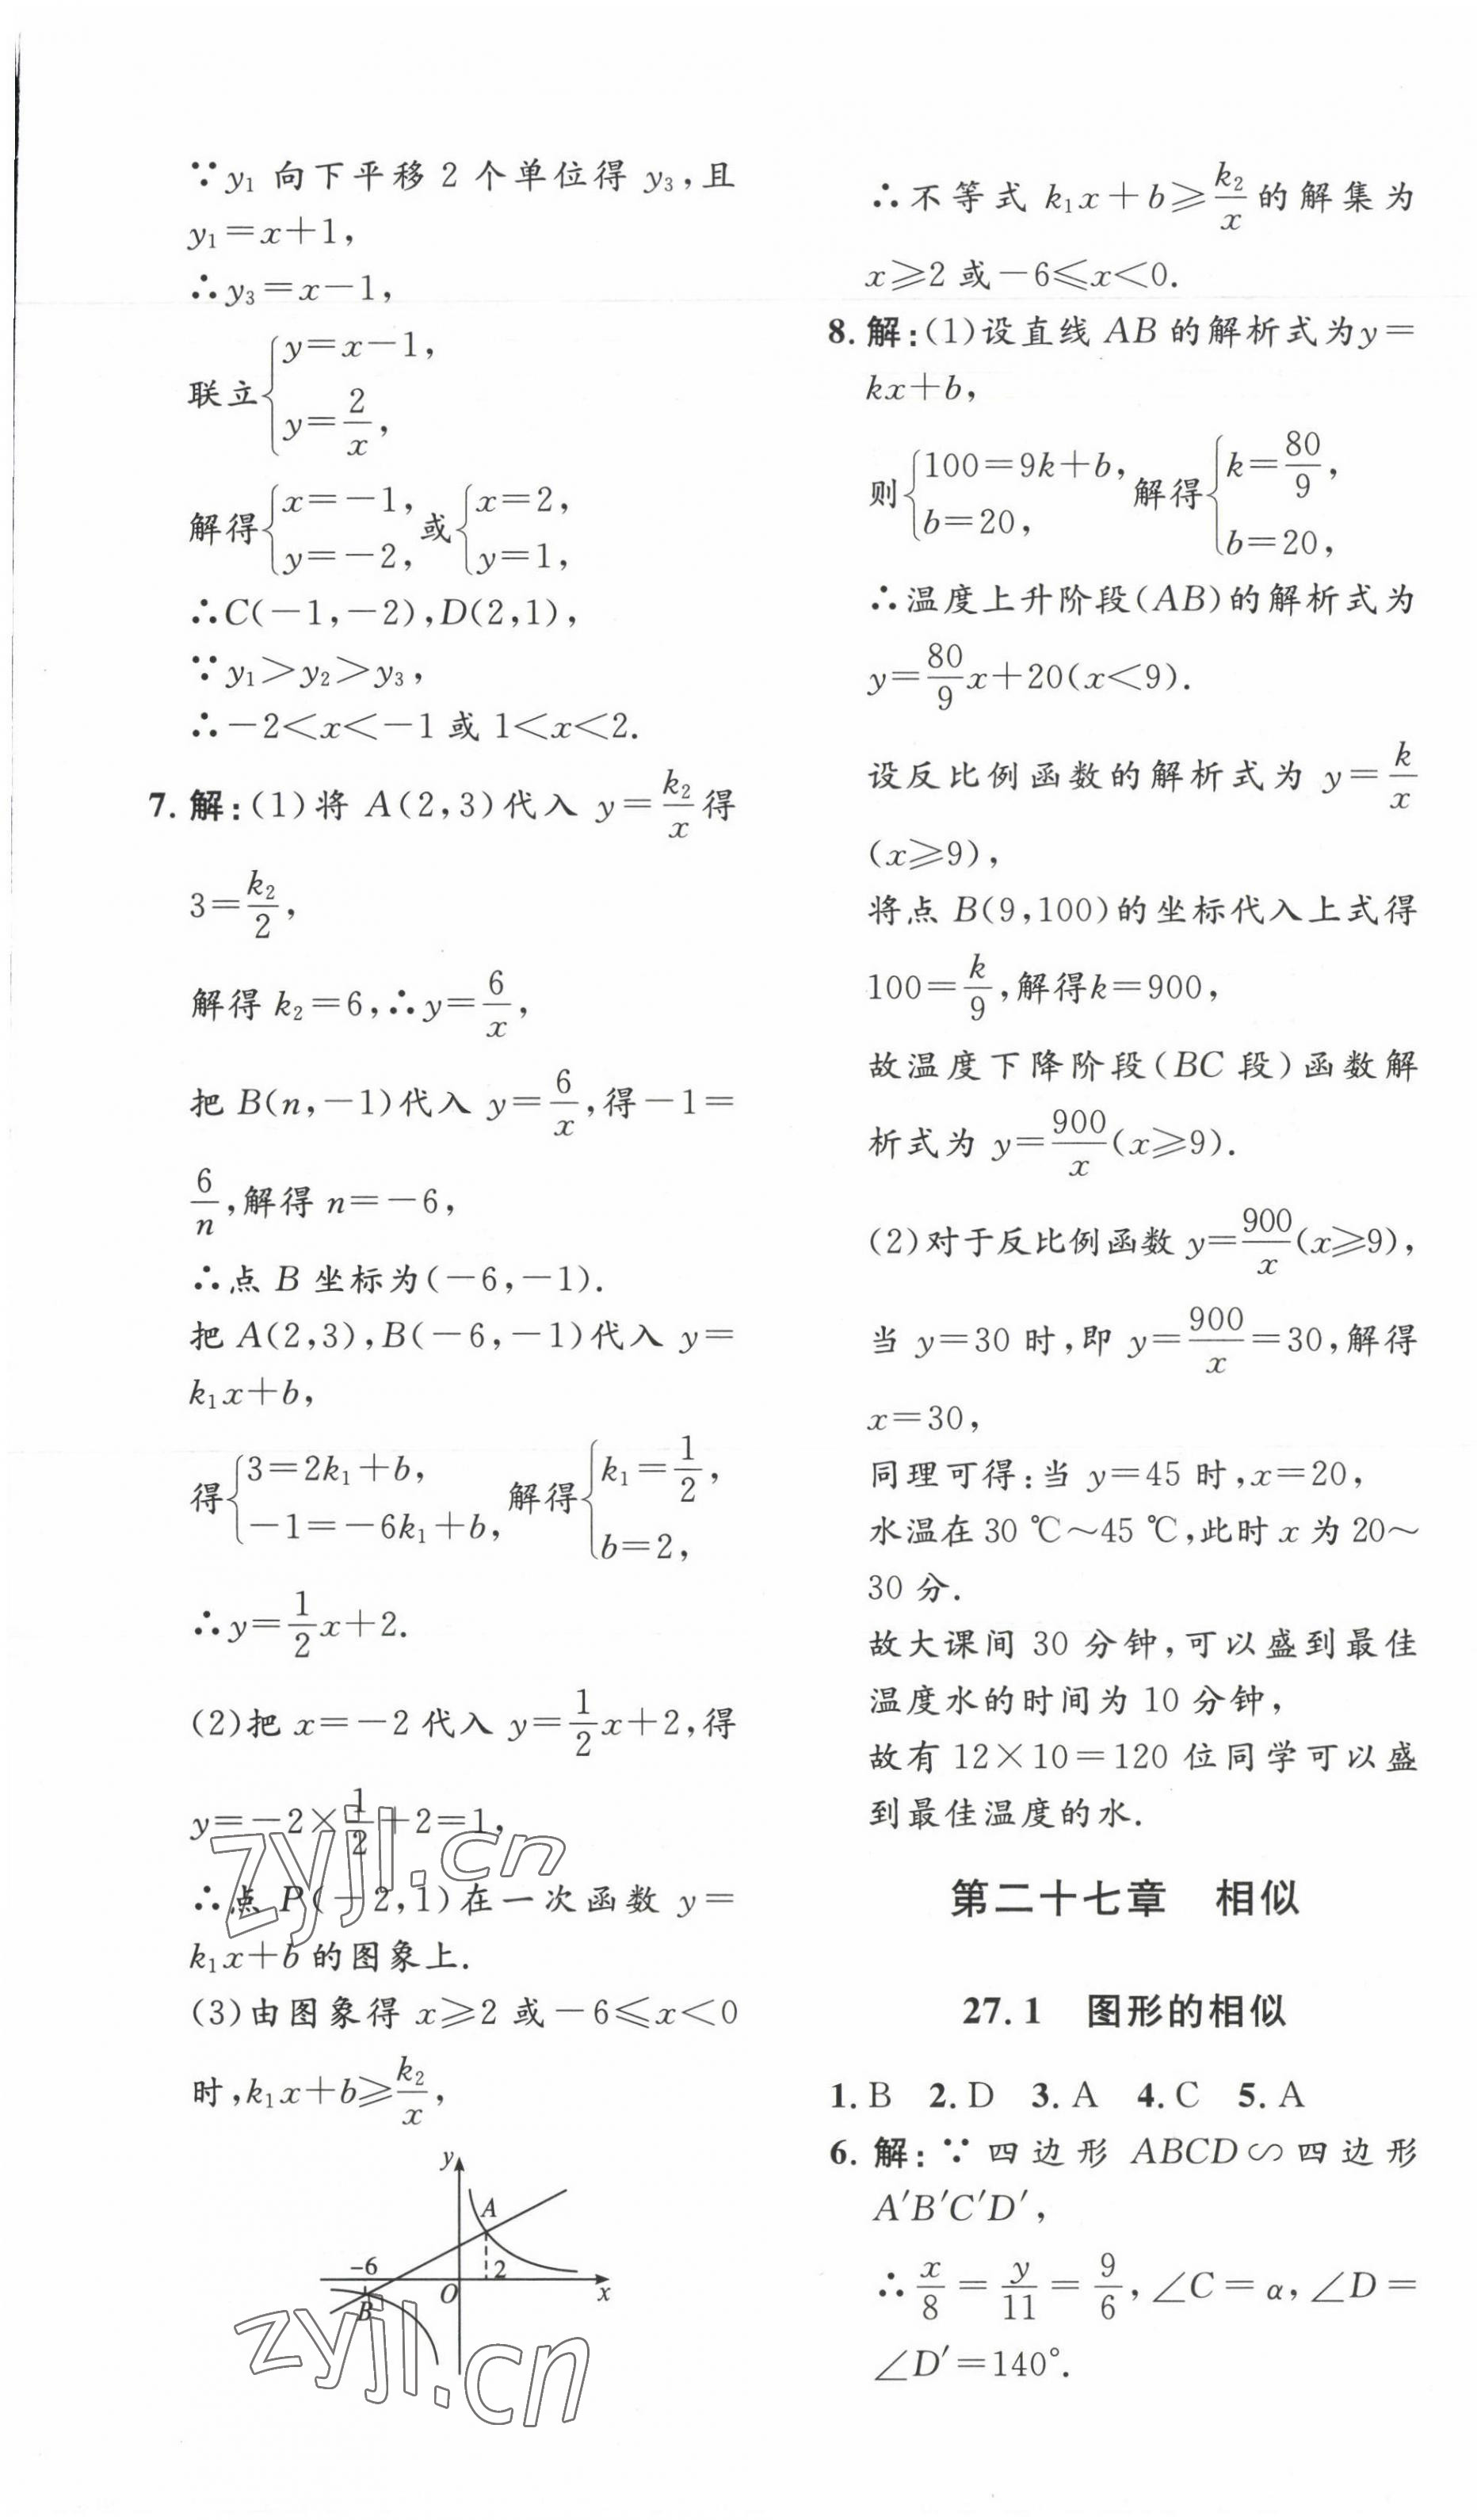 ∵y₁ 向下平移 2 个单位得 y₃,且
y₁=x+1,
∴y₃=x−1,
联立{y=x−1, y=2/x,
解得{x=−1, y=−2, 或{x=2, y=1,
∴C(−1,−2),D(2,1),
∵y₁>y₂>y₃,
∴−2<x<−1 或 1<x<2.
7. 解:(1)将 A(2,3)代入 y=k₂/x 得
3=k₂/2,
解得 k₂=6,∴y=6/x,
把 B(n,−1)代入 y=6/x,得−1=
6/n,解得 n=−6,
∴点 B 坐标为(−6,−1).
把 A(2,3),B(−6,−1)代入 y=
k₁x+b,
得{3=2k₁+b, −1=−6k₁+b, 解得{k₁=1/2, b=2,
∴y=1/2x+2.
(2)把 x=−2 代入 y=1/2x+2,得
y=−2×1/2+2=1,
∴点 P(−2,1)在一次函数 y=
k₁x+b 的图象上.
(3)由图象得 x≥2 或−6≤x<0
时,k₁x+b≥k₂/x,
y
A
−6
2
B
O
x
zyjl.cn
zyjl.cn
∴不等式 k₁x+b≥k₂/x 的解集为
x≥2 或−6≤x<0.
8. 解:(1)设直线 AB 的解析式为y=
kx+b,
则{100=9k+b, b=20, 解得{k=80/9, b=20,
∴温度上升阶段(AB)的解析式为
y=80/9x+20(x<9).
设反比例函数的解析式为 y=k/x
(x≥9),
将点 B(9,100)的坐标代入上式得
100=k/9,解得k=900,
故温度下降阶段(BC 段)函数解
析式为 y=900/x(x≥9).
(2)对于反比例函数 y=900/x(x≥9),
当 y=30 时,即 y=900/x=30,解得
x=30,
同理可得:当 y=45 时,x=20,
水温在 30 ℃~45 ℃,此时 x 为 20~
30 分.
故大课间 30 分钟,可以盛到最佳
温度水的时间为 10 分钟,
故有 12×10=120 位同学可以盛
到最佳温度的水.
第二十七章 相似
27.1 图形的相似
1. B 2. D 3. A 4. C 5. A
6. 解:∵四边形 ABCD∽四边形
A′B′C′D′,
∴x/8=y/11=9/6,∠C=α,∠D=
∠D′=140°.